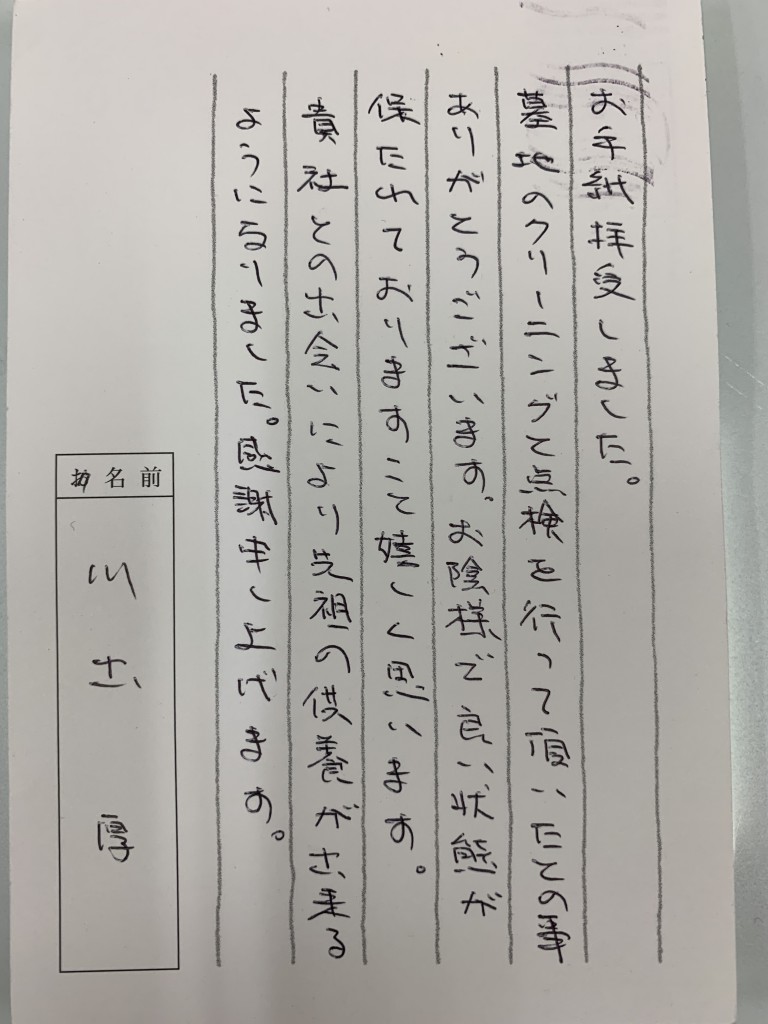 お手紙拝受しました。
墓地のクリーニングと点検を行って頂いたとの事
ありがとうございます。お陰様で良い状態が
保たれておりますこと嬉しく思います。
貴社との出会いにより先祖の供養が出来る
ようになりました。感謝申し上げます。
お名前
川出 厚